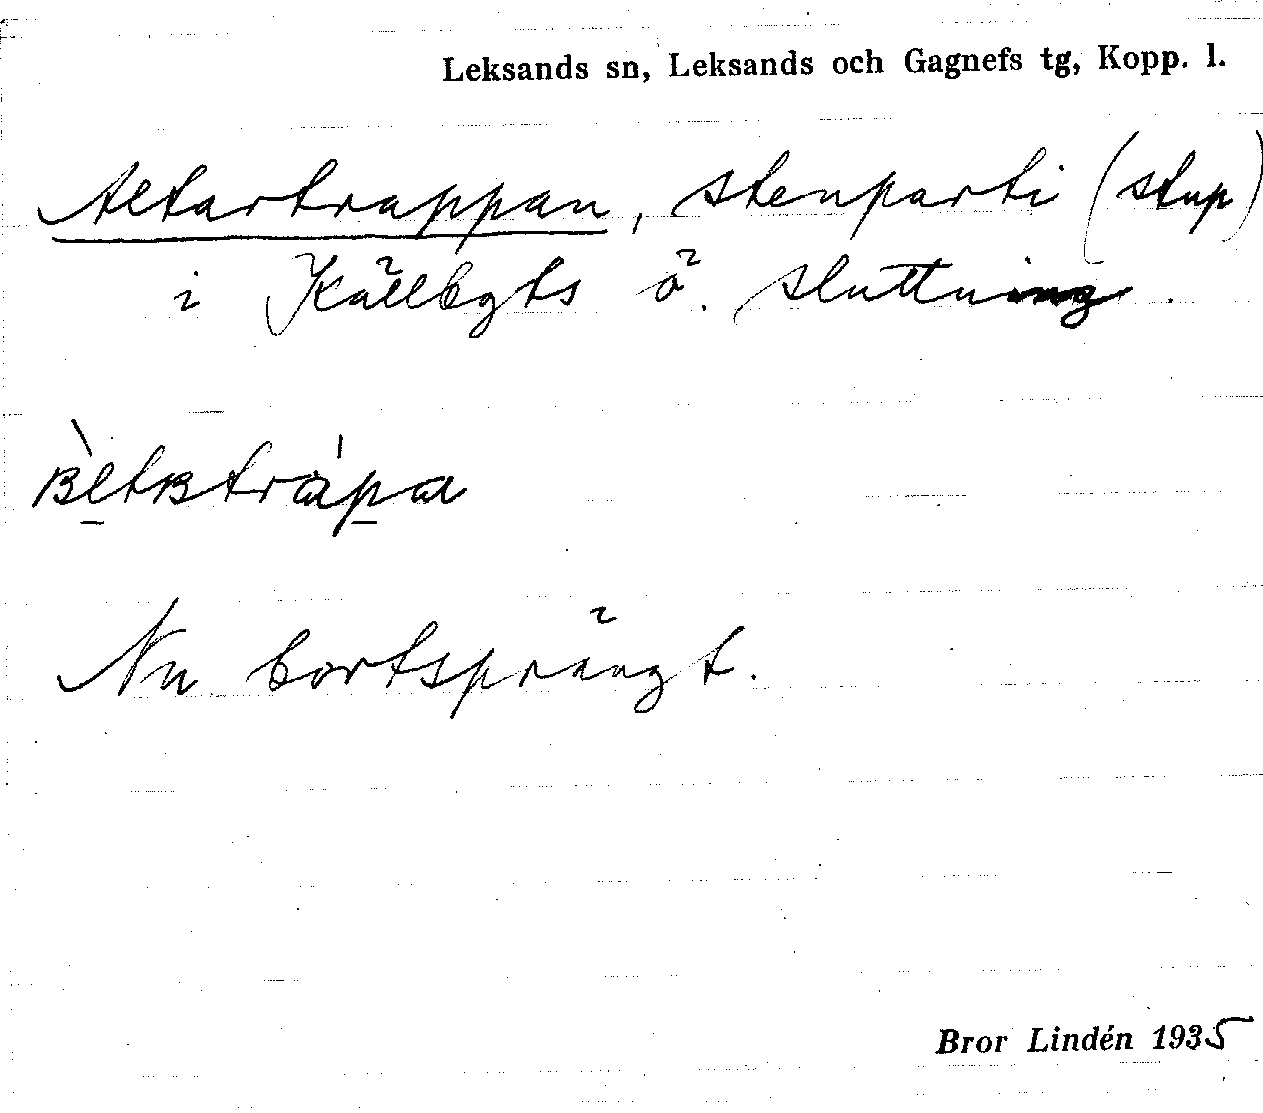 Leksands sn, Leksands och Gagnefs tg, Kopp. l.
Altartrappan, stenparti (stup)
i Källbgts ö. sluttning.
Nu bortsprängt.
Bror Lindén 1935